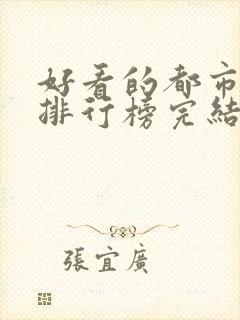 好看的都市
排行榜完結
張宜廣